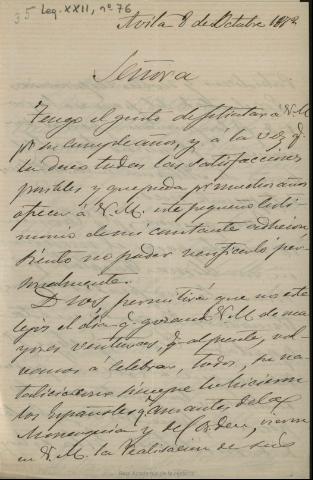 35 Leg. XXII, nº 76
Avila 8 de Octubre 1872
Señora
Tengo el gusto de felicitar á V.M.
pr su cumpleaños, y á la vez q.
la deseo todas las satisfacciones
posibles y que pueda pr muchos años
ofrecer á V.M. este pequeño testi
monio de mi constante adhesion,
siento no poder verificarlo per
sonalmente.
Dios, permitirá que no este
lejos el dia q. gozando V.M. de ma
yores venturas, q. al presente, vol
vamos a celebrar, todos, su na
talicio como siempre lo hicieron
los Españoles amantes de la
Monarquia y del orden, vieron
en V.M. la realizacion de sus
Real Academia de la Historia